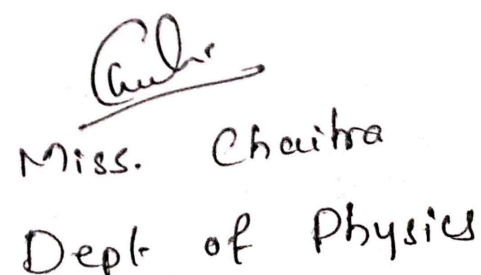 Miss. Chaitra
Dept of Physics